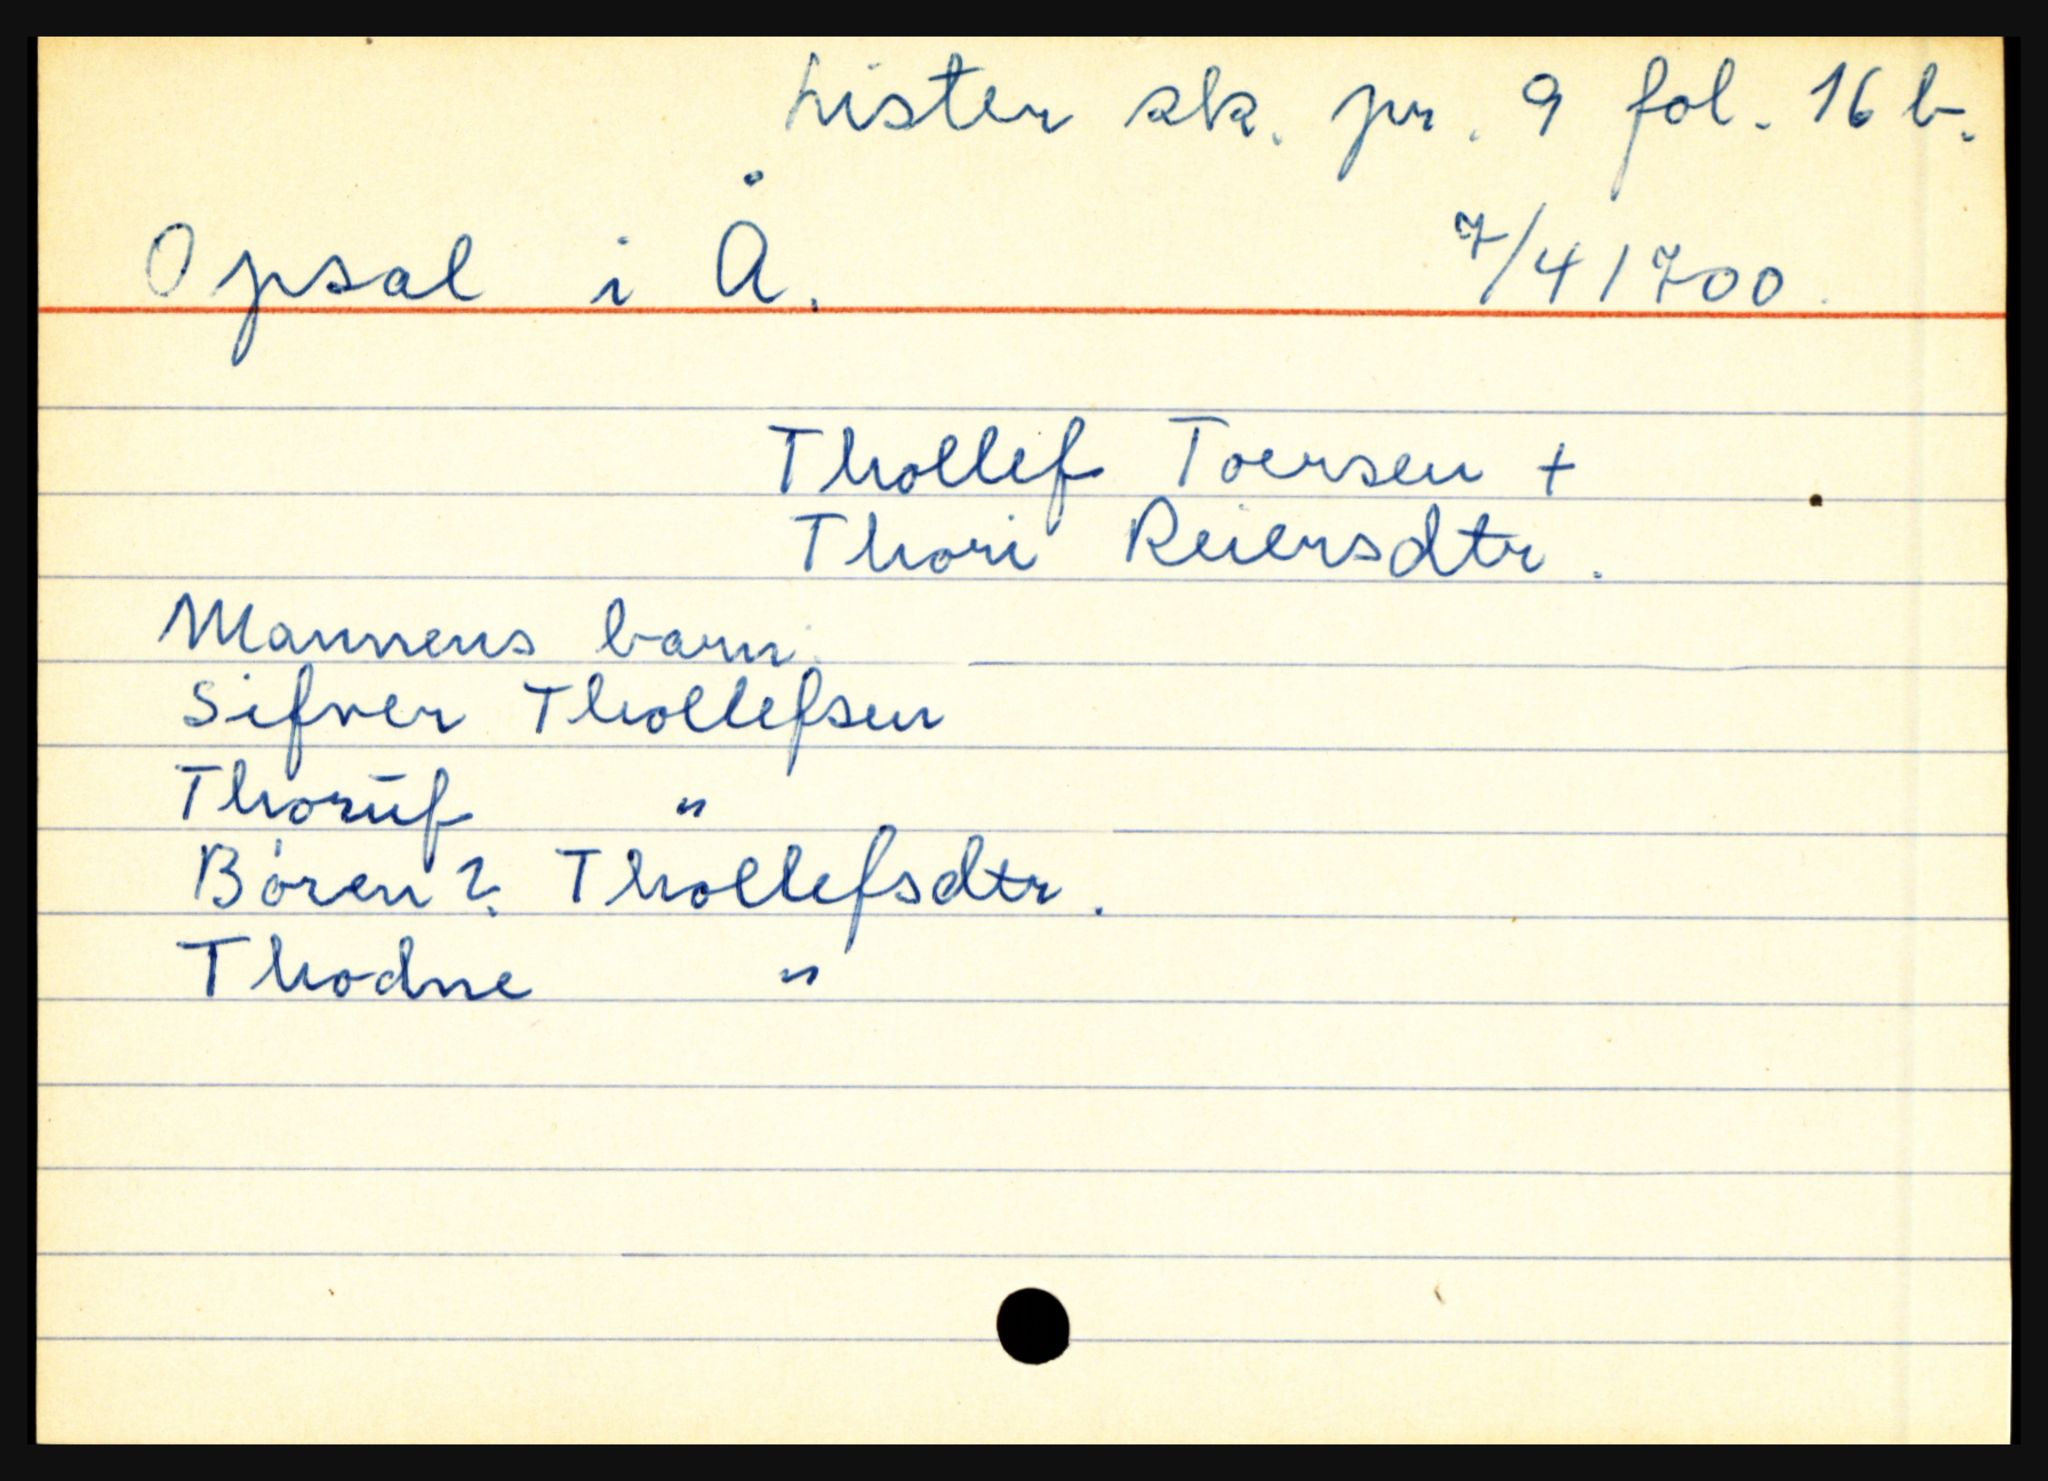 Lister sk. pr. 9 fol. 16 b.
Opsal i Å. 7/4 1700.
Thollef Toersen +
Thori Reiersdtr.
Mannens barn.
Sifver Thollefsen
Thorüf "
Bóren? Thollefsdtr.
Thodne "